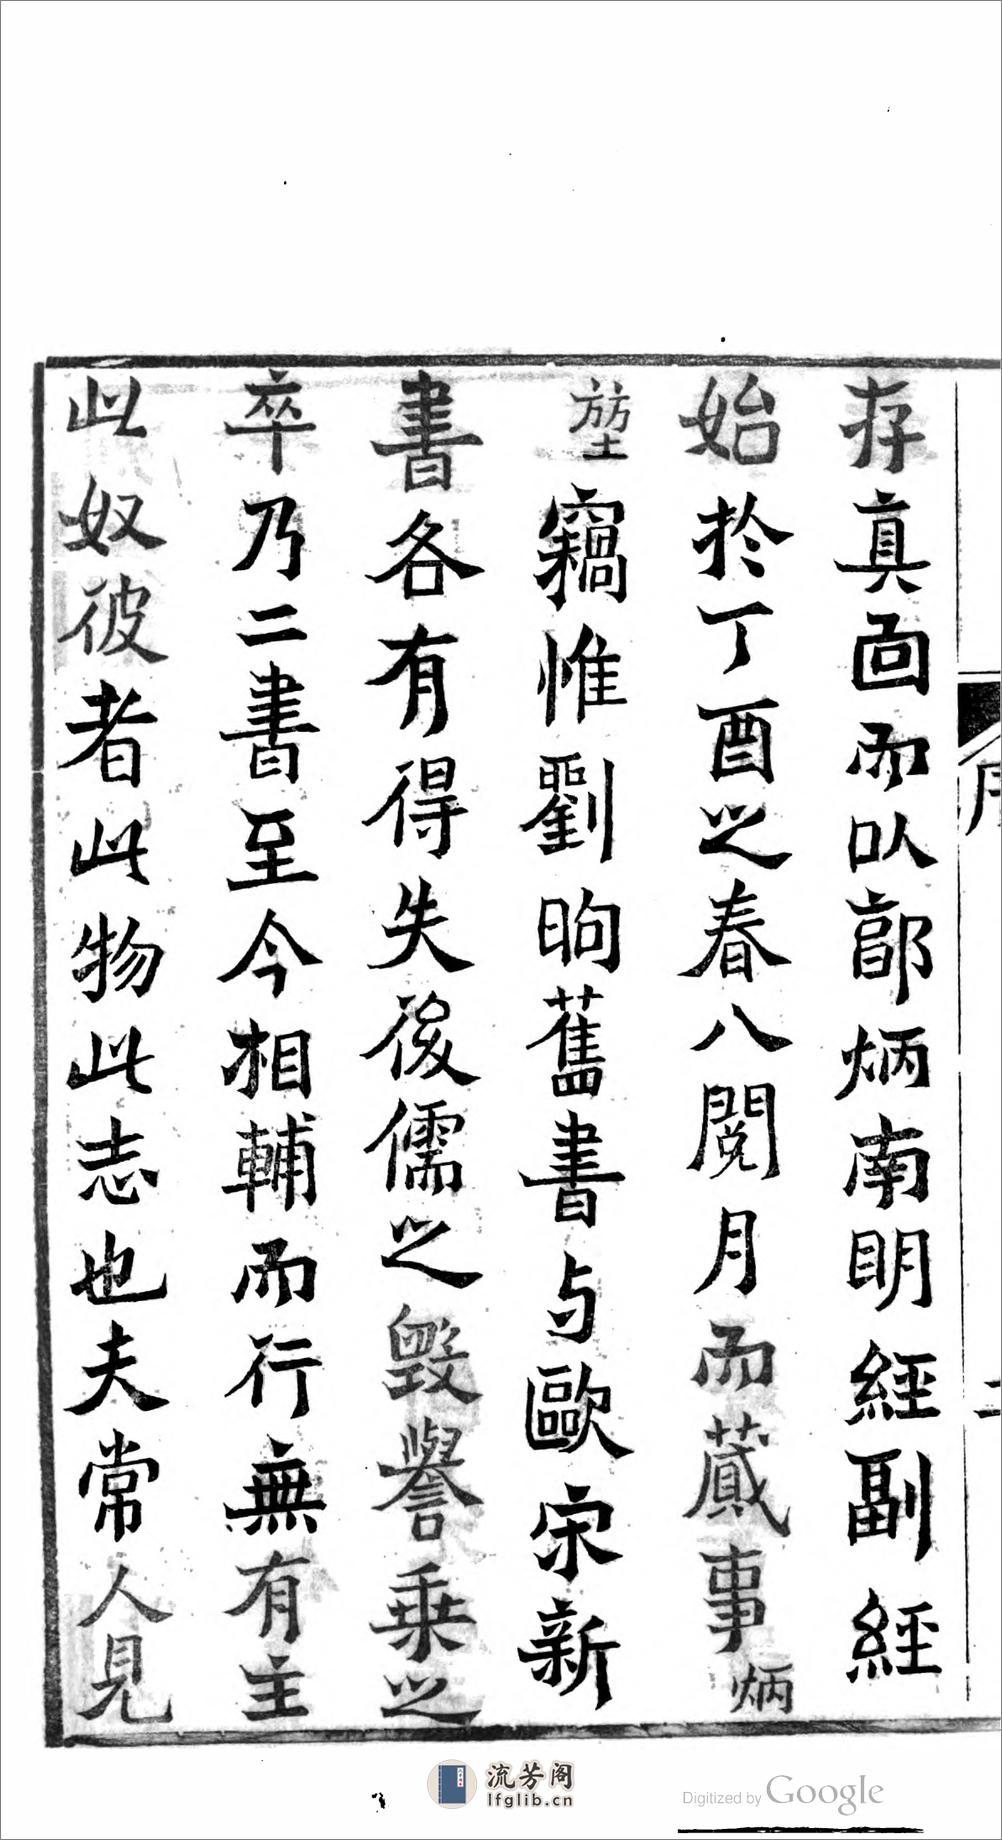 存真面而以郭炳南明經副經
始於丁酉之春八閱月而蕆事炳
堃竊惟劉昫舊書与歐宋新
書各有得失後儒之毀譽乗之
卒乃二書至今相輔而行無有主
此奴彼者此物此志也夫常人見
流芳阁
lfglib.cn
Digitized by Google